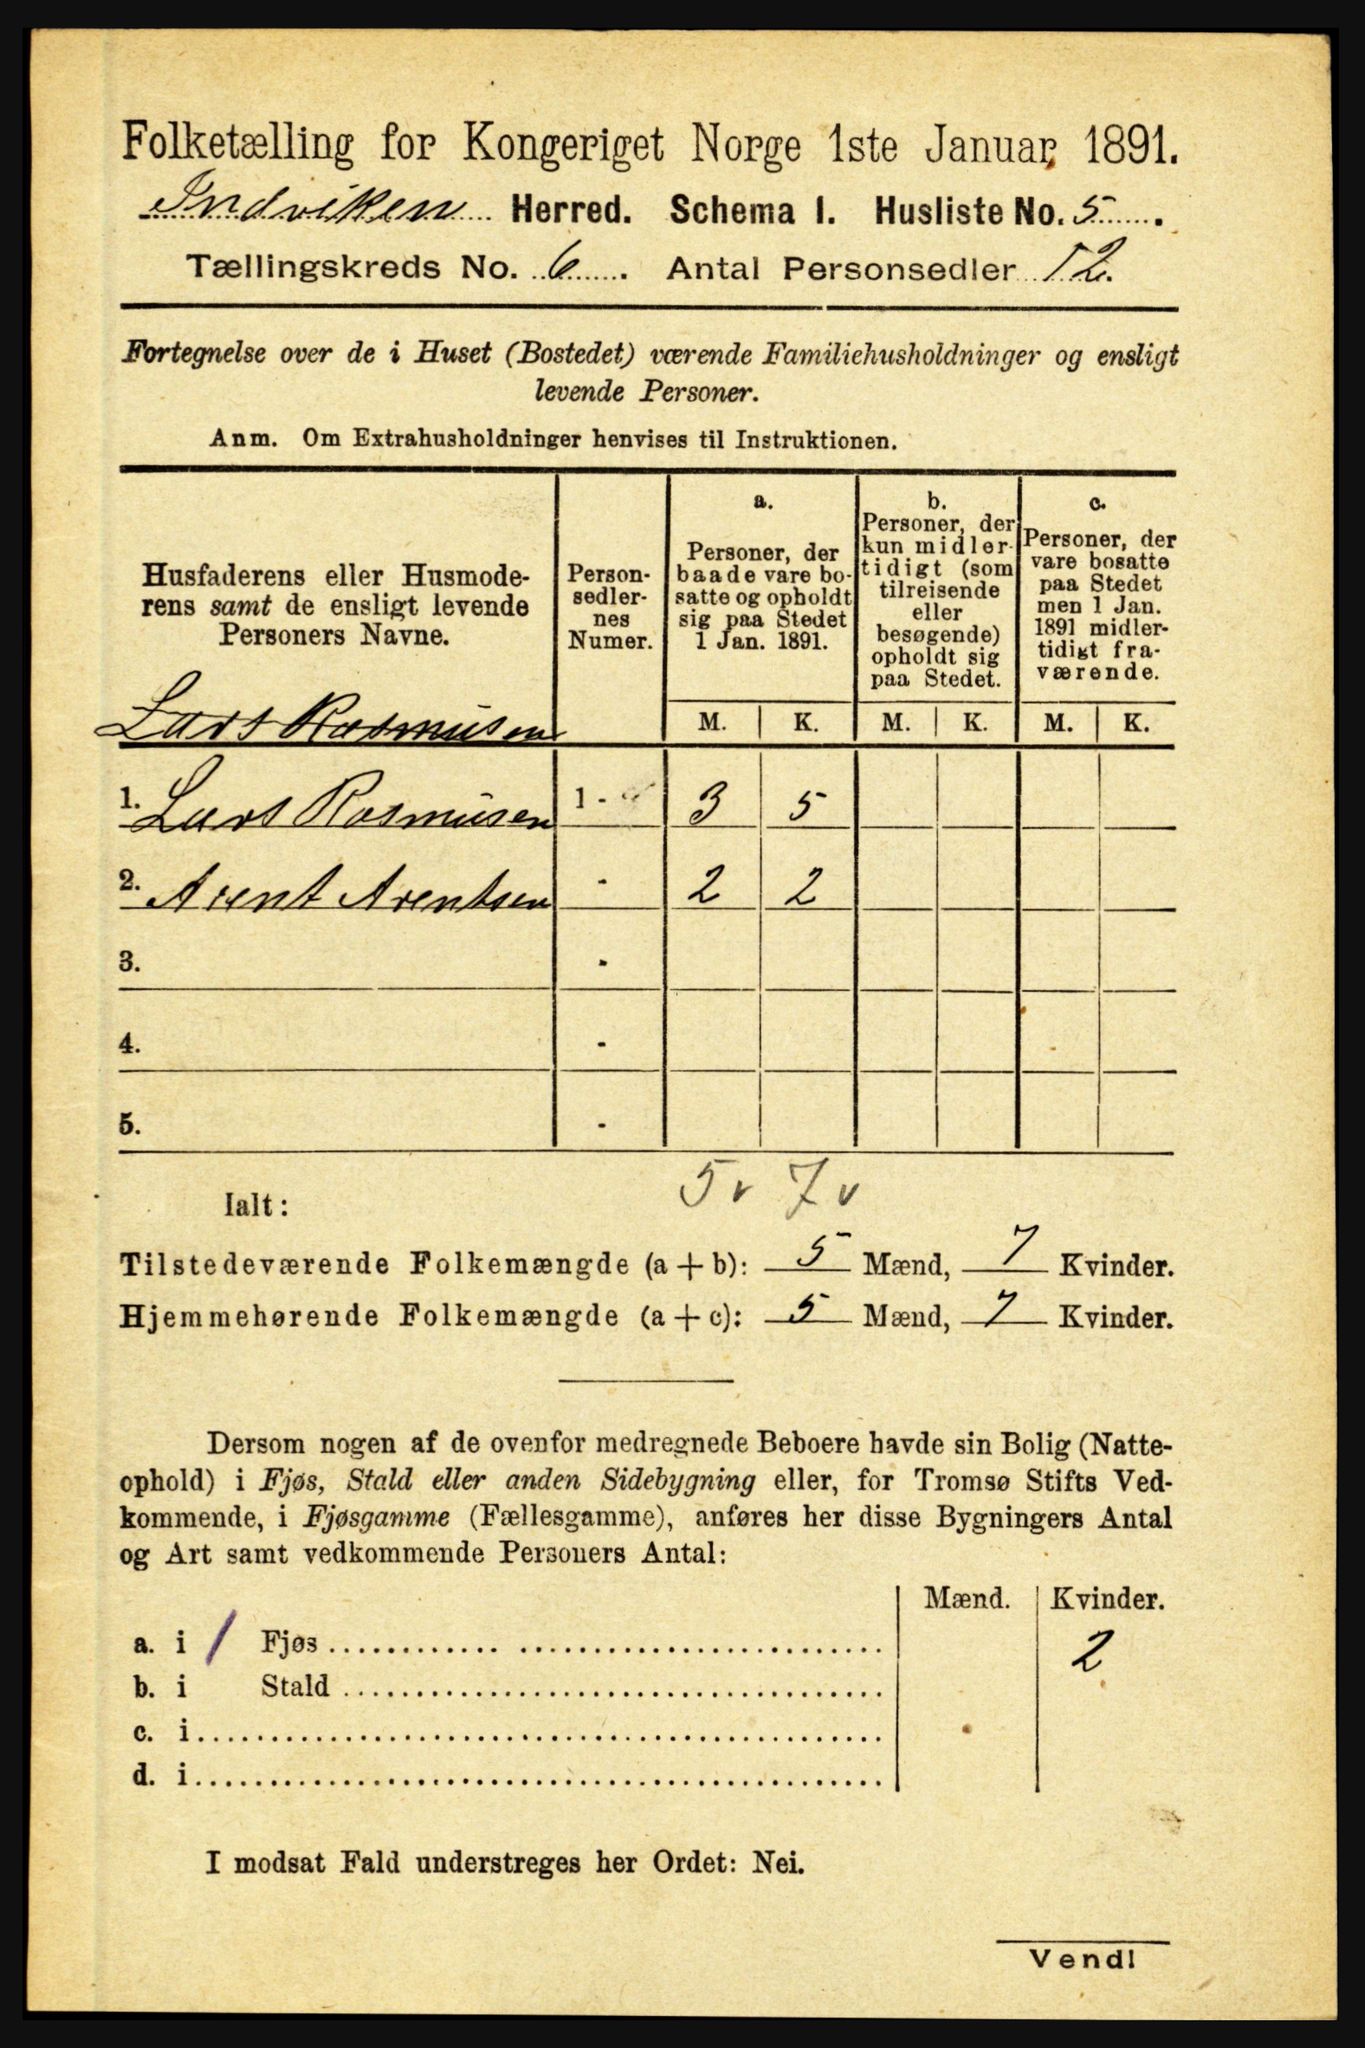 Folketælling for Kongeriget Norge 1ste Januar 1891.
Indviken Herred. Schema I. Husliste No. 5.
Tællingskreds No. 6. Antal Personsedler 12.
Fortegnelse over de i Huset (Bostedet) værende Familiehusholdninger og ensligt
levende Personer.
Anm. Om Extrahusholdninger henvises til Instruktionen.
Husfaderens eller Husmode-
rens samt de ensligt levende
Personers Navne.
Lars Rasmusen
Person-
sedler-
nes
Numer.
a.
Personer, der
baade vare bo-
satte og opholdt
sig paa Stedet
1 Jan. 1891.
b.
Personer, der
kun midler-
tidigt (som
tilreisende
eller
besøgende)
opholdt sig
paa Stedet.
c.
Personer, der
vare bosatte
paa Stedet
men 1 Jan.
1891 midler-
tidigt fra-
værende.
M. K. M. K. M. K.
1. Lars Rasmusen 1 - 3 5
2. Arent Arentsen - 2 2
3. -
4. -
5. -
5 v 7 v
Ialt:
Tilstedeværende Folkemængde (a + b): 5 Mænd, 7 Kvinder.
Hjemmehørende Folkemængde (a + c): 5 Mænd, 7 Kvinder.
Dersom nogen af de ovenfor medregnede Beboere havde sin Bolig (Natte-
ophold) i Fjøs, Stald eller anden Sidebygning eller, for Tromsø Stifts Ved-
kommende, i Fjøsgamme (Fællesgamme), anføres her disse Bygningers Antal
og Art samt vedkommende Personers Antal:
Mænd. Kvinder.
a. i 1 Fjøs 2
b. i Stald
c. i
d. i
I modsat Fald understreges her Ordet: Nei.
Vend!